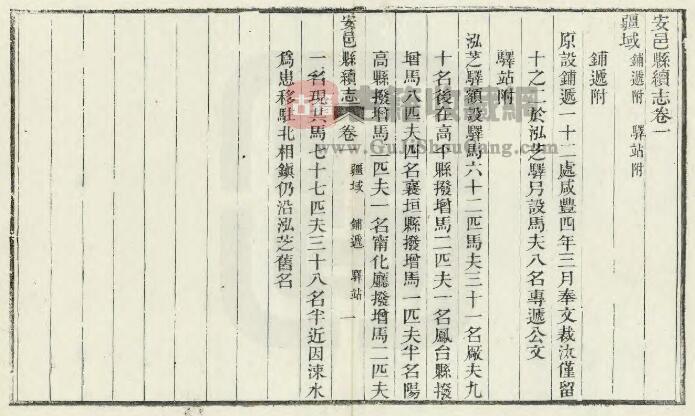 安邑縣續志卷一
疆域 鋪遞附 驛站附
鋪遞附
原設鋪遞一十二處咸豐四年三月奉文裁汰僅留
十之二於泓芝驛另設馬夫八名專遞公文
驛站附
泓芝驛額設驛馬六十二匹馬夫三十一名廠夫九
十名後在高平縣撥增馬二匹夫一名鳳台縣撥
增馬八匹夫四名襄垣縣撥增馬一匹夫半名陽
高縣撥增馬二匹夫一名甯化廳撥增馬二匹夫
安邑縣續志 卷一 疆域 鋪遞 驛站 一
一名現共馬七十七匹夫三十八名半近因涑水
為患移駐北相鎮仍沿泓芝舊名
古籍 古籍收藏網
www.GuJiShouCang.com